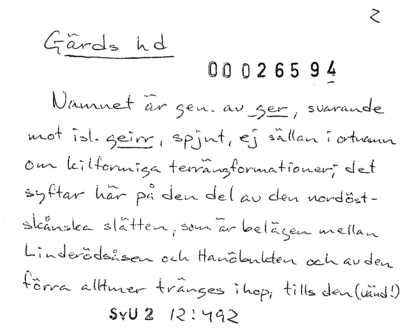 2
Gärds hd
00026594
Namnet är gen. av ger, svarande
mot isl. geirr, spjut, ej sällan i ortnamn
om kilformiga terrängformationer; det
syftar här på den del av den nordöst-
skånska slätten, som är belägen mellan
Linderödsåsen och Hanöbukten och av den
förra alltmer tränges ihop, tills den (vänd!)
SvU 2 12:492